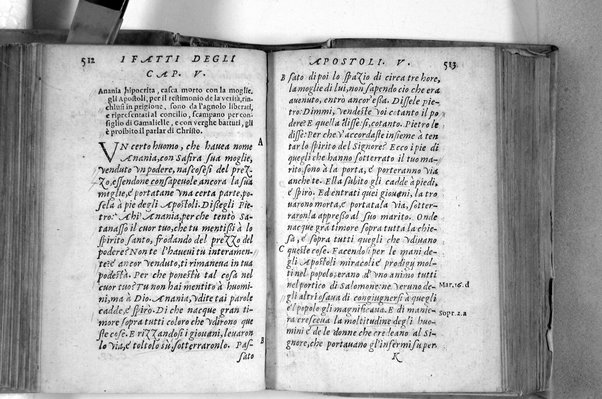 512
I FATTI DEGLI
CAP. V.
Anania hipocrita, casca morto con la moglie,
gli Apostoli, per il testimonio de la verità, rin
chiusi in prigione, sono da l'agnolo liberati,
e ripresentati al concilio, scampano per con
siglio di Gamalielle, e con verghe battuti, gli
è proibito il parlar di Christo.
VN certo huomo, che haueua nome A
Anania, con Safira sua moglie,
venduto vn podere, nascosesi del prez
zo, essendone consapeuole ancora la sua
moglie, e portatane vna certa parte, po
sela à pie degli Apostoli. Dissegli Pie
tro: Ahi Anania, per che tentò Sa
tanasso il cuor tuo, che tu mentissi à lo
spirito santo, frodando del prezzo del
podere? Non te l'haueui tu interamen
te? e ancor venduto, ti rimaneua in tua
podestà. Per che ponestù tal cosa nel
cuor tuo? Tu non hai mentito à huomi
ni, ma à Dio. Anania, vdite tai parole
cadde, e spirò. Di che nacque gran ti-
more sopra tutti coloro che vdirono que
ste cose. E rizzandosi i giouani, leuaron
lo via, e toltolo sù, sotterraronlo. Pas B
sato
APOSTOLI. V. 513
B sato di poi lo spazio di circa tre hore,
la moglie di lui, non sapendo cio che era
auuenuto, entro ancor'essa. Dissele pie-
tro: Dimmi, vendeste voi cotanto il po
dere? E quella disse: sì, cotanto. Pietro le
disse: Per che v'accordaste insieme à ten
tar lo spirito del Signore? Ecco i pie di
quegli che hanno sotterrato il tuo ma-
rito, sono à la porta, e porteranno via
anche te. Ella subito gli cadde à piedi,
e spirò. Ed entrati que i giouani, la tro
uarono morta, e portatala via, sotter-
raronla appresso al suo marito. Onde
nacque grā timore sopra tutta la chie-
sa, e sopra tutti quegli che vdiuano
C queste cose. Facendosi per le mani de-
gli Apostoli miracoli e prodigij mol-
ti nel popolo, erano d'vno animo tutti
nel portico di Salomone: ne veruno de- Mar. 16. d
gli altri osaua di congiugnersi à quegli
e'l popolo gli magnificaua. E di manie- Sopr. 2. a
ra cresceua la moltitudine degli huo-
mini e de le donne che credeano al Si-
gnore, che portauano gl'infermi su per
K